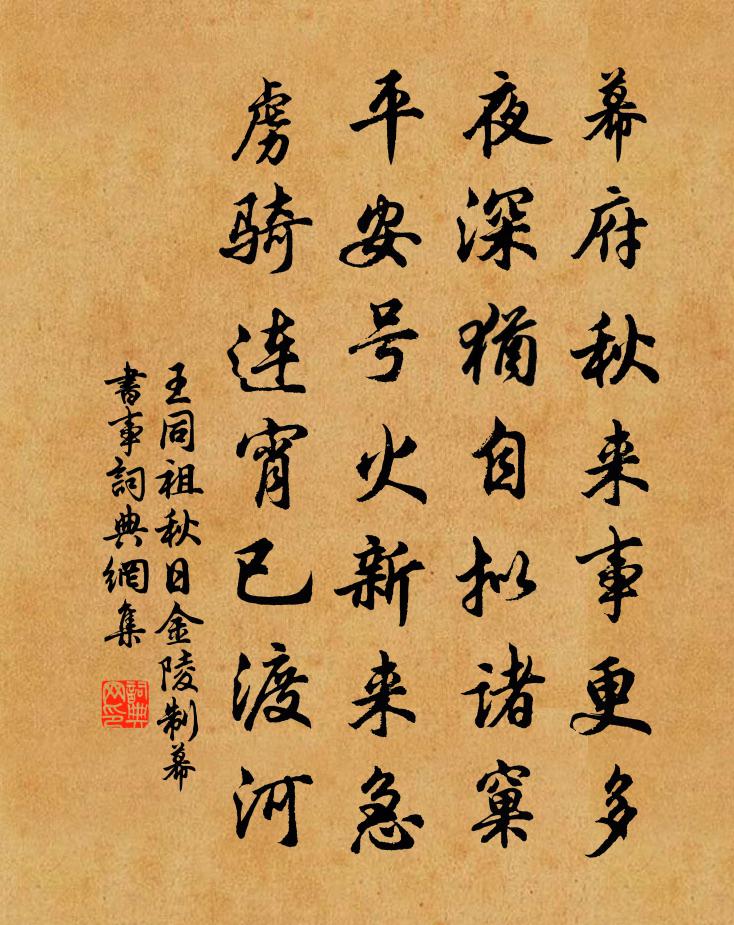 幕府秋来事更多
夜深犹自拟诸窠
平安号火新来急
虏骑连宵已渡河
王同祖秋日金陵制幕
書事詞典網集
詞典网印